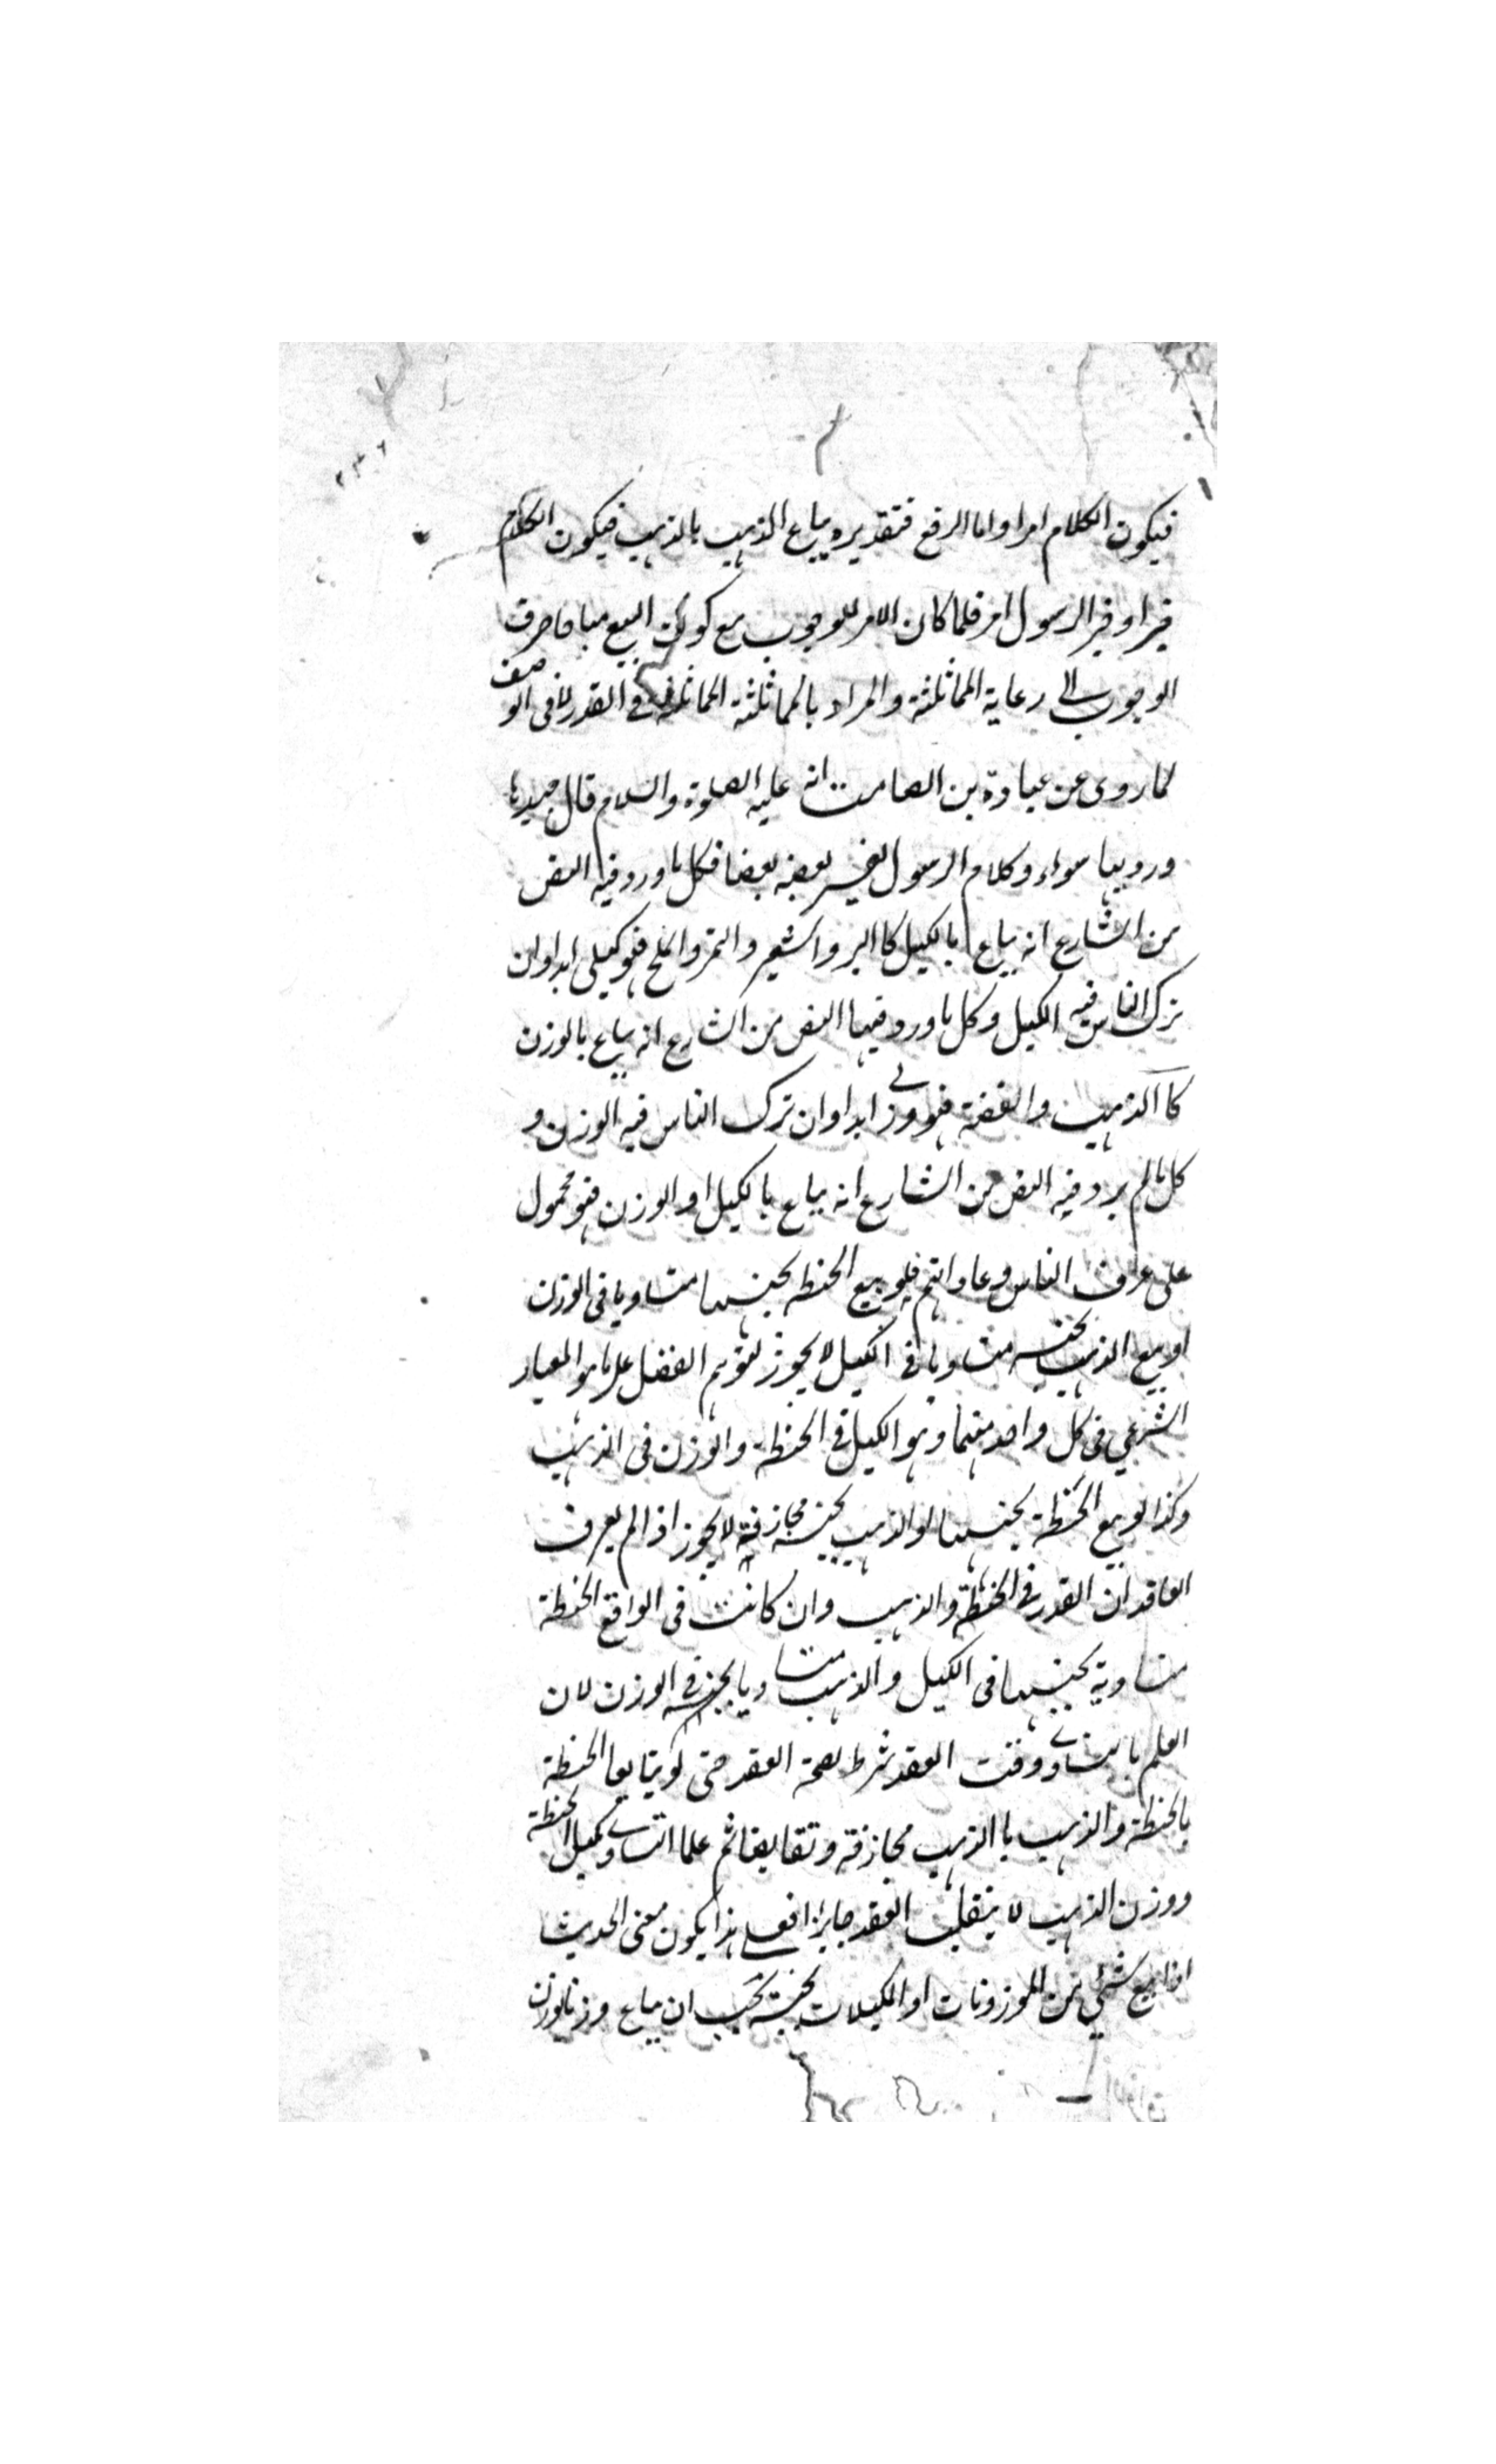 فيكون الكلام امرا واما الرفع فتقديره يباع الذهب بالذهب فيكون الكلام
خبرا وخبر الرسول امر فلما كان الامر للوجوب مع كون البيع مباحا صرف
الوجوب الى رعاية المماثلة والمراد بالمماثلة المماثلة في القدر لا في الوصف
لما روى عن عبادة بن الصامت انه عليه الصلوة والسلام قال جيدها
ورديها سواء وكلام الرسول يفسر بعضه بعضا فكل ما ورد فيه النص
من الشارع انه يباع بالكيل كالبر والشعير والتمر والملح فهو كيلى ابدا وان
ترك الناس فيه الكيل وكل ما ورد فيها النص من الشارع انه يباع بالوزن
كا الذهب والفضة فهو وزنى ابدا وان ترك الناس فيه الوزن و
كل ما لم يرد فيه النص من الشارع انه يباع بالكيل او الوزن فهو محمول
على عرف الناس وعاداتهم فلو بيع الحنطه بجنسها متساويا فى الوزن
او بيع الذهب بجنسه متساويا فى الكيل لا يجوز لتوهم الفضل على ما هو المعيار
الشرعي فى كل واحد منهما وهو الكيل فى الحنطة والوزن فى الذهب
وكذا لو بيع الحنطة بجنسها او الذهب بجنسه مجازفة لا يجوز اذا لم يعرف
العاقدان القدر فى الحنطة والذهب وان كانت فى الواقع الحنطة
متساوية بجنسها فى الكيل والذهب متساويا بجنسه فى الوزن لان
العلم بالتساوى وقت العقد شرط لصحة العقد حتى لو تبايعا الحنطة
بالحنطة والذهب با الذهب مجازفة وتقابضا ثم علما التساوى بكيل الحنطة
ووزن الذهب لا ينقلب العقد جايزا فعلى هذا يكون معنى الحديث
اذا بيع شئ من الموزونات او المكيلات بجنسه يجب ان يباع وزنا بوزن